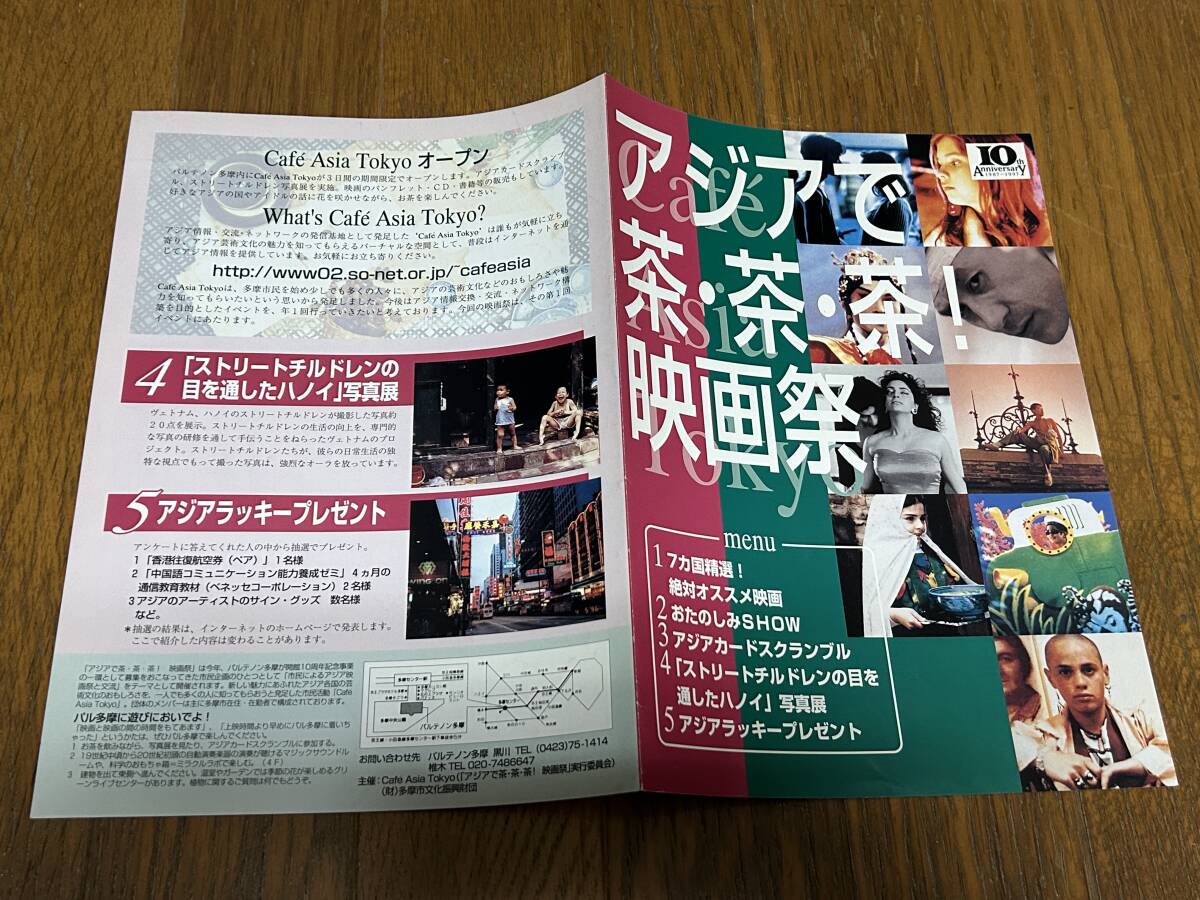 Café Asia Tokyo オープン
パルテノン多摩内にCafé Asia Tokyoが3日間の期間限定でオープンします。アジアカードスクランブ
ル、ストリートチルドレン写真展を実施。映画のパンフレット・CD・書籍等の販売もしています。
好きなアジアの国やアイドルの話に花を咲かせながら、お茶を楽しんでください。
What's Café Asia Tokyo?
アジア情報・交流・ネットワークの発信基地として発足した“Café Asia Tokyo”は誰もが気軽に立ち
寄り、アジア芸術文化の魅力を知ってもらえるバーチャルな空間として、普段はインターネットを通
じてアジア情報を提供しています。お気軽にお立ち寄りください。
http://www02.so-net.or.jp/~cafeasia
Café Asia Tokyoは、多摩市民を始め少しでも多くの人々に、アジアの芸術文化などのおもしろさや魅
力を知ってもらいたいという思いから発足しました。今後はアジア情報交換・交流・ネットワーク構
築を目的としたイベントを、年1回行っていきたいと考えております。今回の映画祭は、その第1回
イベントにあたります。
4 「ストリートチルドレンの
目を通したハノイ」写真展
ヴェトナム、ハノイのストリートチルドレンが撮影した写真約
20点を展示。ストリートチルドレンの生活の向上を、専門的
な写真の研修を通して手伝うことをねらったヴェトナムのプロ
ジェクト。ストリートチルドレンたちが、彼らの日常生活の独
特な視点でもって撮った写真は、強烈なオーラを放っています。
5 アジアラッキープレゼント
アンケートに答えてくれた人の中から抽選でプレゼント。
1「香港往復航空券（ペア）」1名様
2「中国語コミュニケーション能力養成ゼミ」4ヵ月の
通信教育教材（ベネッセコーポレーション）2名様
3アジアのアーティストのサイン・グッズ 数名様
など。
*抽選の結果は、インターネットのホームページで発表します。
ここで紹介した内容は変わることがあります。
「アジアで茶・茶・茶！ 映画祭」は今年、パルテノン多摩が開館10周年記念事業
の一環として募集をおこなってきた市民企画のひとつとして「市民によるアジア映
画祭と交流」をテーマとして開催されます。新しい魅力にあふれたアジア各国の芸
術文化のおもしろさを、一人でも多くの人に知ってもらおうと発足した市民活動「Café
Asia Tokyo」。団体のメンバーは主に多摩市在住・在勤者で構成されております。
パル多摩に遊びにおいでよ！
「映画と映画の間の時間をもてあます」、「上映時間より早めにパル多摩に着いち
ゃった」というかたは、ぜひパル多摩で楽しんでください。
1 お茶を飲みながら、写真展を見たり、アジアカードスクランブルに参加する。
2 19世紀中頃から20世紀初頭の自動演奏楽器の演奏が聴けるマジックサウンドル
ームや、科学のおもちゃ箱=ミラクルラボで楽しむ。（4F）
3 建物を出て東側へ進んでください。温室やガーデンでは季節の花が楽しめるグリ
ーンライブセンターがあります。植物に関するご質問は何でもどうぞ。
多摩センター駅
多摩中央公園
パルテノン多摩
お問い合わせ先 パルテノン多摩 黒川 TEL (0423)75-1414
椎木 TEL 020-7486647
主催：Cafe Asia Tokyo（「アジアで茶・茶・茶！ 映画祭」実行委員会）
（財）多摩市文化振興財団
アジアで
茶・茶・茶！
映画祭
Café
Asia
Tokyo
10th
Anniversary
1987-1997
menu
1 7カ国精選！
絶対オススメ映画
2 おたのしみSHOW
3 アジアカードスクランブル
4 「ストリートチルドレンの目を
通したハノイ」写真展
5 アジアラッキープレゼント